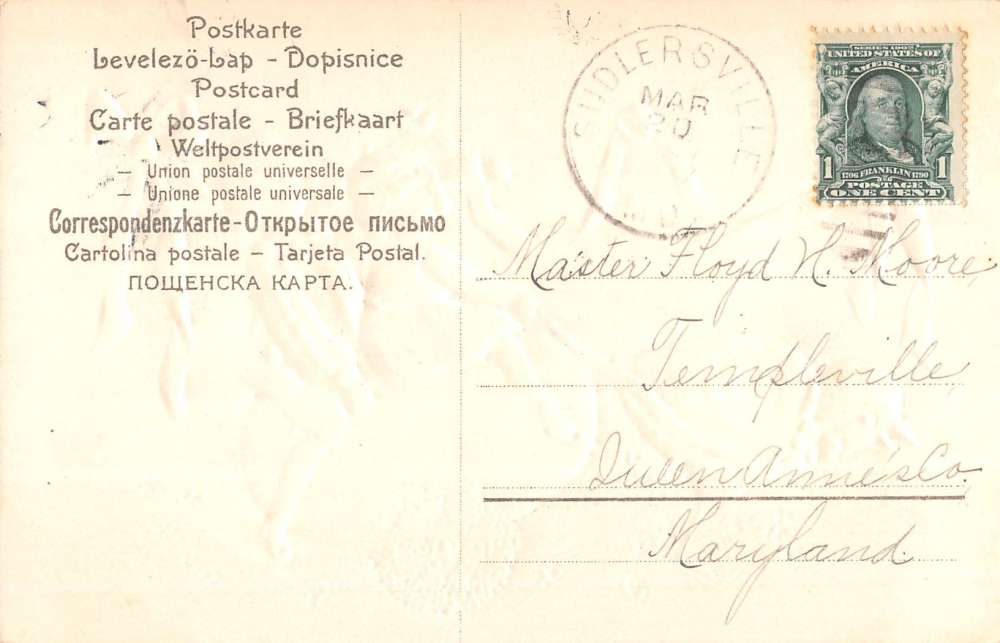 Postkarte
Levelező-Lap - Dopisnice
Postcard
Carte postale - Briefkaart
Weltpostverein
— Union postale universelle —
— Unione postale universale —
Correspondenzkarte-Открытое письмо
Cartolina postale - Tarjeta Postal.
ПОЩЕНСКА КАРТА.
SUDLERSVILLE
MAR
20
MD.
SERIES 1902
UNITED STATES OF
AMERICA
1706 FRANKLIN 1790
1 1
POSTAGE
ONE CENT
Master Floyd H. Moore
Templeville
Queen Anne's Co
Maryland.